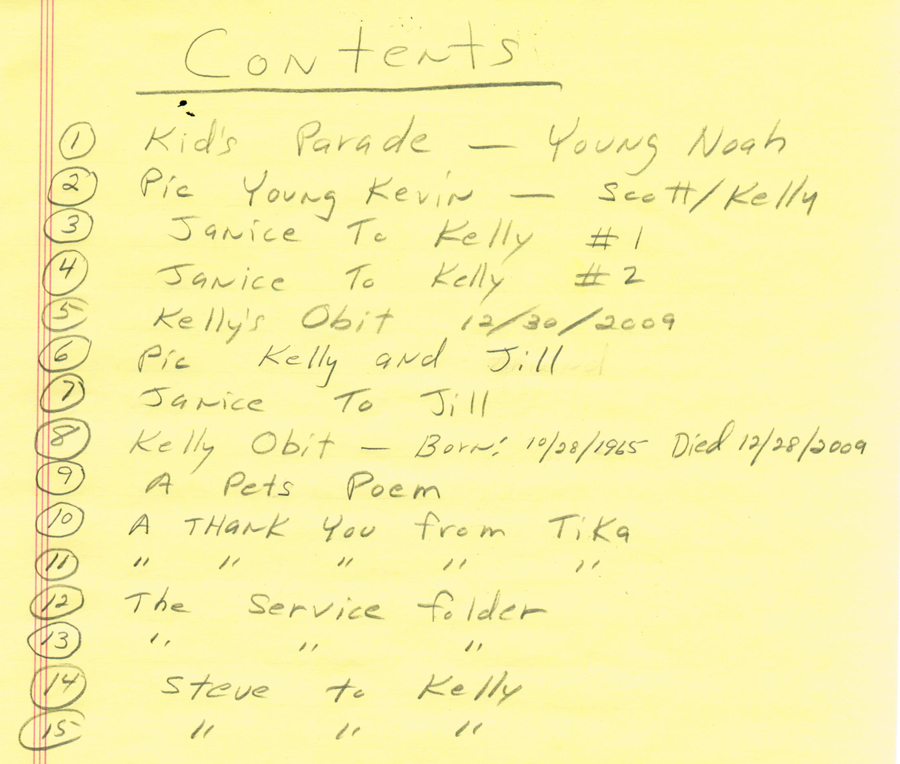 Contents
1 Kid's Parade — Young Noah
2 Pic Young Kevin — Scott/Kelly
3 Janice To Kelly #1
4 Janice To Kelly #2
5 Kelly's Obit 12/30/2009
6 Pic Kelly and Jill
7 Janice To Jill
8 Kelly Obit — Born: 10/28/1965 Died 12/28/2009
9 A Pets Poem
10 A THANK You from Tika
11 " " " " "
12 The Service folder
13 " " "
14 Steve to Kelly
15 " " "